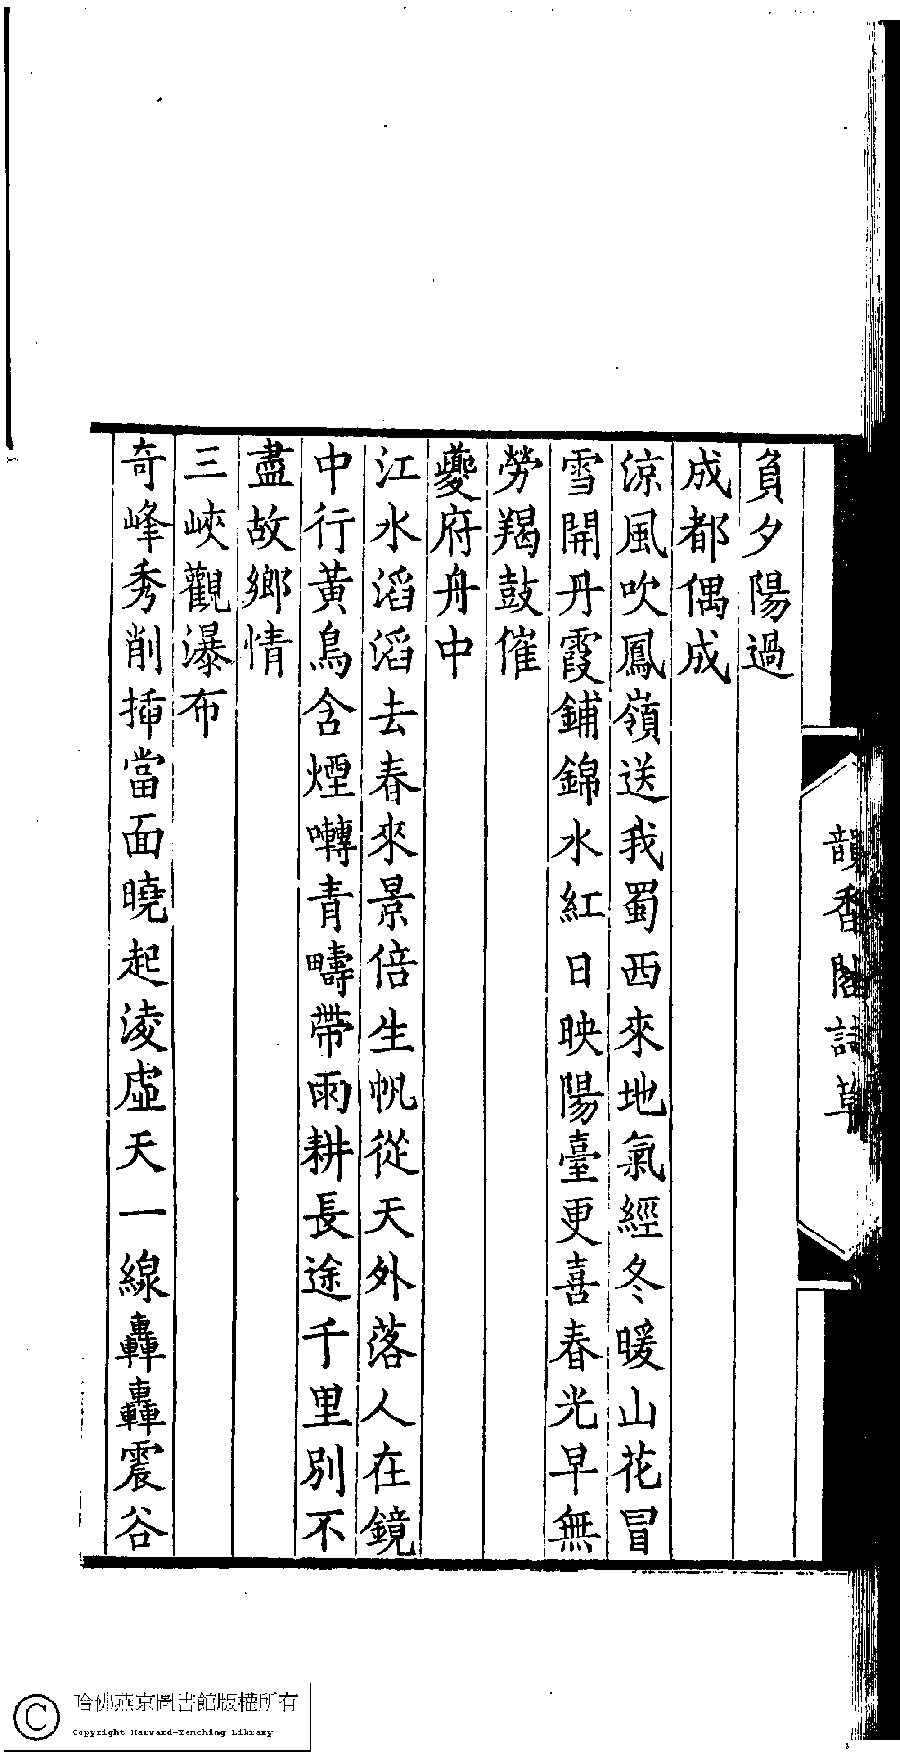 負夕陽過
成都偶成
涼風吹鳳嶺送我蜀西來地氣經冬暖山花冒
雪開丹霞鋪錦水紅日映陽臺更喜春光早無
勞羯鼓催
夔府舟中
江水滔滔去春來景倍生帆從天外落人在鏡
中行黃鳥含煙囀青疇帶雨耕長途千里別不
盡故鄉情
三峽觀瀑布
奇峰秀削揷當面曉起淩虛天一線轟轟震谷
韻香閣詩草
哈佛燕京圖書館版權所有
Copyright Harvard-Yenching Library